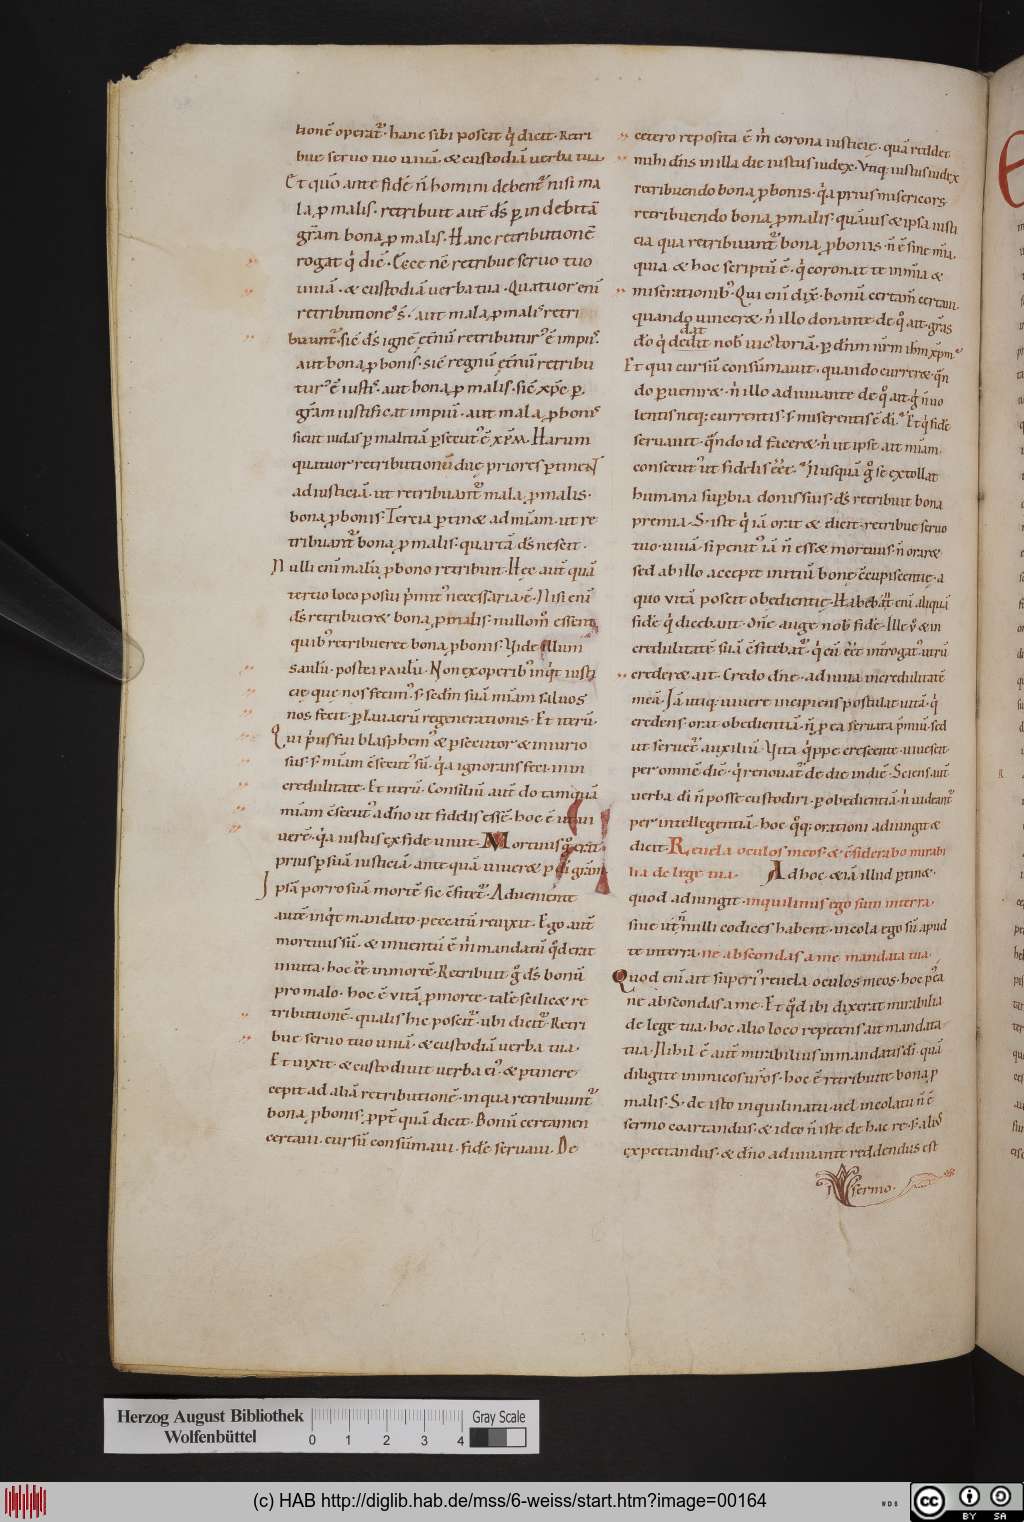 tionē operat᷑. hanc sibi poscit q̇ dicit. Retri
bue seruo tuo uiuā. & custodiā uerba tua.
Et quō ante fidē n̄ homini debent᷑ nisi ma
la, ꝑ malis. retribuit aut̄ d̄s ꝑ indebitā
grām bona, ꝑ malis. Hanc retributionē
rogat q̇ dic̄. Ecce nē retribue seruo tuo
uiuā. & custodiā uerba tua. Quatuor eni
retributiones̄. aut mala, ꝑ malis retri
buunt᷑. sic̄ d̄s ignē et̄nū retributurꝰ ē impiis.
aut bona, ꝑ bonis. sic̄ regnū et̄nū retribu
turꝰ ē iustis. aut bona, ꝑ malis. sic̄ xp̄c ꝑ
grām iustificat impiū. aut mala, ꝑ bonis
sicut iudas ꝑ malitiā ꝑsecutꝰ ē xp̄m. Harum
quatuor retributionū duę priores ꝑtinent
ad iusticiā. ut retribuant᷑ mala, ꝑ malis.
bona, ꝑ bonis. Tercia ꝑtin& ad mīam. ut re
tribuant᷑ bona, ꝑ malis. quartā d̄s nescit.
Nulli enī malū, ꝑ bono retribuit. Hęc aut̄ quā
tertio loco posui p̄mitꝰ necessaria ē. Nisi enī
d̄s retribuer& bona, ꝑ malis. nullom̄ essent
quibꝰ retribueret bona, ꝑ bonis. Vide illum
saulū. postea paulū. Non ex operibꝰ inq̇t iusti
cię quę nos fecimꝰ. s; sedm̄ suā mīam saluos
nos fecit. ꝑ lauacrū regenerationis. Et iterū.
Qui ṗus fui blasphemꝰ & ꝑsecutor & iniurio
sus. s; mīam c̄secutꝰ sū. q̇a ignorans feci. in in
credulitate. Et iterū. Consiliū aut̄ do tamquā
mīam c̄secutꝰ a dn̄o ut fidelis essē. hoc ē ut ui
uerē. q̇a iustus ex fide uiuit. Mortuus ḡ erat
prius ꝑ suā iusticiā. ante quā uiuer& ꝑ d̄i grām.
Ipsā porro suā mortē sic c̄fitet᷑. Adueniente
autē inq̇t mandato. peccatū reuixit. Ego aut̄
mortuus sū. & inuentū ē m̄ mandatū qd̄ erat
in uita. hoc ēē in mortē. Retribuit ḡ d̄s bonū
pro malo. hoc ē vitā, ꝑ morte. talē scilic& re
tributionē. qualis hic poscit᷑. ubi dicit᷑. Retri
bue seruo tuo uiuā. & custodiā uerba tua.
Et uixit. & custodiuit uerba eiꝰ. & ꝑtinere
cepit ad aliā retributionē. in qua retribuunt᷑
bona, ꝑ bonis. ꝓpt̄ quā dicit. Bonū certamen
certaui. cursū consūmaui. fidē seruaui. De
cetero reposita ē m̄ corona iusticię. quā reddet
mihi dn̄s in illa die iustus iudex. Vtiq; iustus iudex
retribuendo bona, ꝑ bonis. q̇a prius misericors
retribuendo bona, ꝑ malis. quāuis & ipsa iusti
cia qua retribuunt᷑ bona, ꝑ bonis. n̄ ē sine mīa.
quia & hoc scriptū ē. q̇ coronat te in mīa &
miserationibꝰ. Qui enī dix̄. bonū certam̄ certaui.
quando uincer& n̄ illo donante. de q̊ ait. grās
d̄o q̇ dedit nob̄ uictoriā. ꝑ dn̄m nr̄m ihm̄ xp̄m.
dat
Et qui cursū consūmauit. quando currer&. qn̄
do ꝑuenir&. n̄ illo adiuuante de q̊ ait. q̇ n̄ uo
lentis neq; currentis. s; miserentis ē d̄i. Et q̇ fidē
seruauit. qn̄do id facer& n̄ ut ipse ait mīam
consecutꝰ ut fidelis ēēt. Nusquā ḡ se extollat
humana suꝑbia. donis suis. d̄s retribuit bona
premia. S; iste q̇ iā orat & dicit. retribue seruo
tuo. uiuā. si penitꝰ iā n̄ ess& mortuus. n̄ orar&.
sed ab illo accepit initiū bonę c̄cupiscentię. a
quo vitā poscit obedientię. Habebant enī aliquā
fidē q̇ dicebant. Dn̄e auge nob̄ fidē. Ille v̊ & in
credulitatē suā c̄fitebat᷑. q̇ cū ēēt introgatꝰ utrū
creder& ait. Credo dn̄e. adiuua incredulitatē
meā. Iā utiq; uiuere incipiens postulat uitā. q̇
credens. orat obedientiā. n̄ ꝑ ea seruata p̄miū. sed
ut seruet᷑ auxiliū. Vita q̇ppe crescente. uiuescit
per omnē diē. q̇ renouat᷑ de die in diē. Sciens aut̄
uerba d̄i n̄ posse custodiri. ꝑ obedientiā. n̄ uideant᷑
per intellegentiā. hoc qq; orationi adiungit &
dicit. Reuela oculos meos. & c̄siderabo mirabi
lia de lege tua. Ad hoc &iā illud ꝑtin&.
quod adiungit. inquilinus ego sum in terra.
siue ut n̄nulli codices habent. incola ego sū apud
te in terra. ne abscondas a me mandata tua.
Quod enī ait suꝑiꝰ reuela oculos meos. hoc p̄ea
ne abscondas a me. Et qd̄ ibi dixerat mirabilia
de lege tua. hoc alio loco repetens ait mandata
tua. Nihil ē aut̄ mirabilius in mandatis d̄i. quā
diligite inimicos ur̄os. hoc ē retribuite bona, ꝑ
malis. S; de isto inquilinatu. uel incolatu n̄ ē
sermo coartandus. & ideo n̄ iste de hac re. s; alius
expectandus. & dn̄o adiuuante reddendus est
sermo.
Herzog August Bibliothek
Wolfenbüttel
0 1 2 3 4
Gray Scale
(c) HAB http://diglib.hab.de/mss/6-weiss/start.htm?image=00164
WDB
cc BY SA